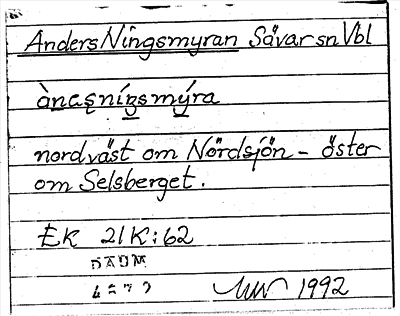 Anders Ningsmyran Sävar sn Vbl
ànasníŋsmýra
nordväst om Nördsjön – öster
om Selsberget.
EK 21K:62
DAUM
1992